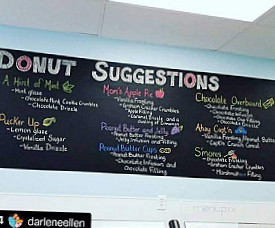 DONUT SUGGESTIONS
A Hint of Mint
-Mint glaze
-Chocolate Mint Cookie Crumbles
-Chocolate Drizzle
Pucker Up
-Lemon glaze
-Crystalized Sugar
-Vanilla Drizzle
Mom's Apple Pie
-Vanilla Frosting
-Graham Cracker Crumbles
-Apple Filling
-Caramel Drizzle and a
Peanut Butter and Jelly
-Peanut Butter Frosting
-Jelly Infusion and Filling
Peanut Butter Cups
-Peanut Butter Frosting
-Chocolate Infusion and
Chocolate Filling
Chocolate Overboard
-Chocolate Frosting
Ahoy Capt'n
-Vanilla Frosting/Peanut Butter
-Capt'n Crunch Cereal
S'mores
-Chocolate Frosting
-Graham Cracker Crumbles
-Marshmallow Filling
darleneellen